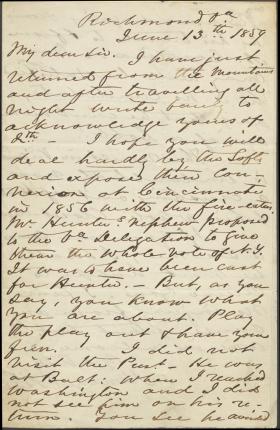 Richmond Va
June 13th 1859
My dear Sir. I have just
returned from the Mountains
and after travelling all
night write back to
acknowledge yours of
8th — I hope you will
deal hardly by the Softs
and expose their con-
nexion at Cincinnati
in 1856 with the fire-eaters.
Mr Hunter's nephew proposed
to the Va Delegation to give
them the whole vote of N.Y.
It was to have been cast
for Hunter — But, as you
say, you know what
you are about. Play
the play out & have your
fun. I did not
visit the Prest. He was
at Balt: when I reached
Washington and I did
not see him on his re-
turn. You see he